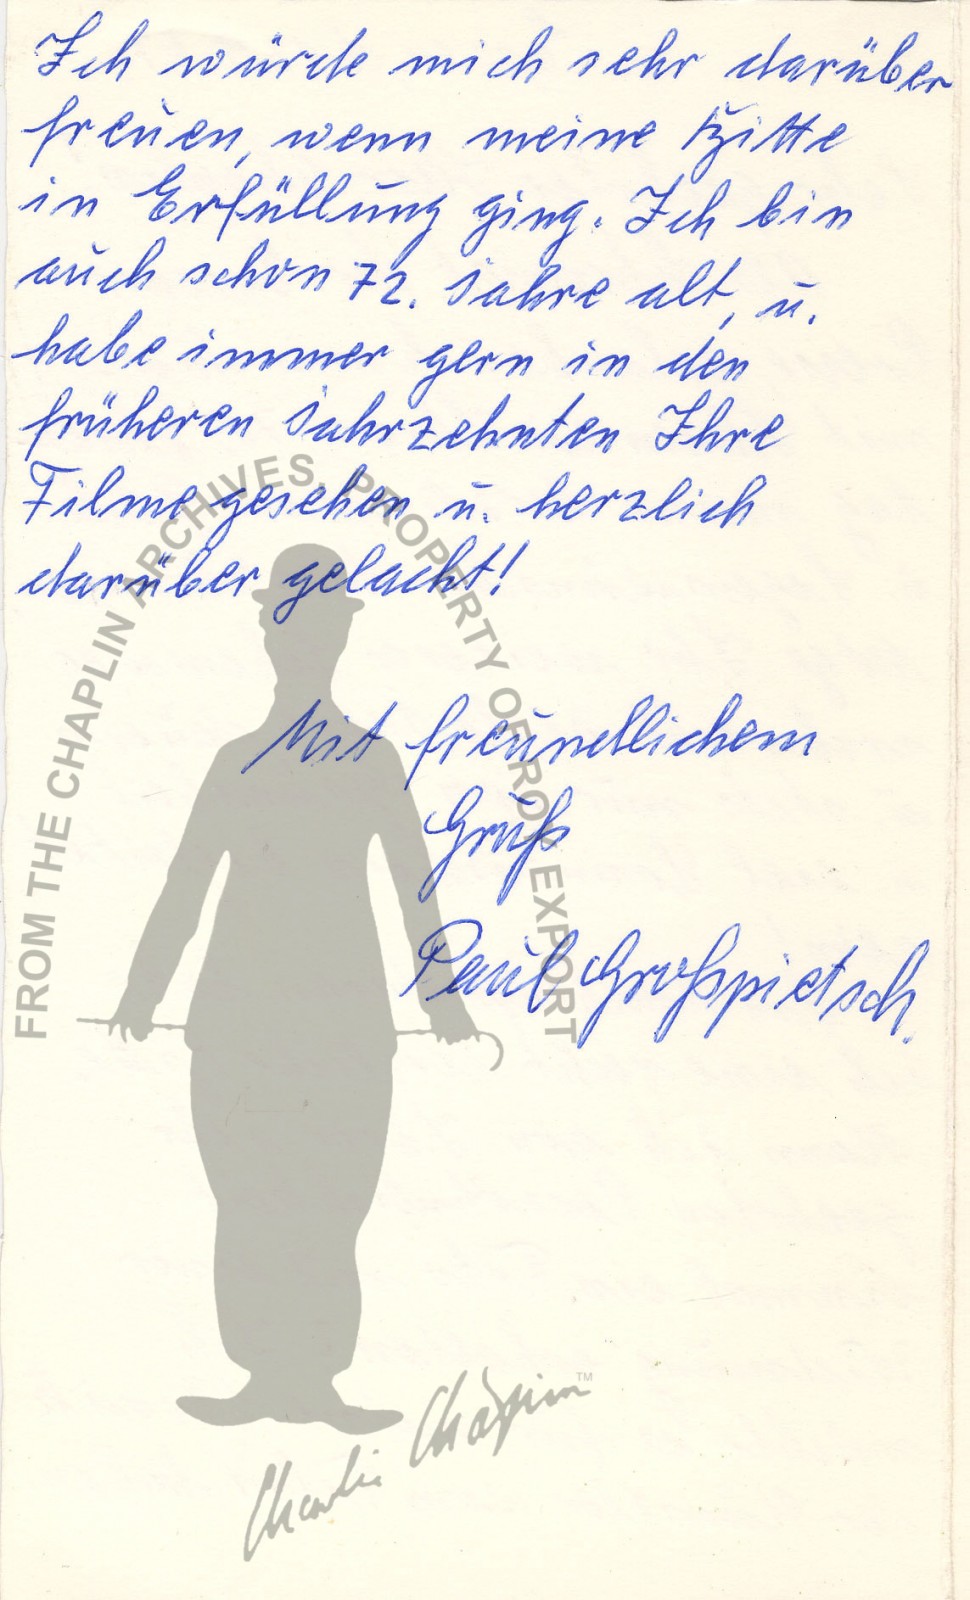 Ich würde mich sehr darüber
freuen, wenn meine Bitte
in Erfüllung ging. Ich bin
auch schon 72. Jahre alt, u.
habe immer gern in den
früheren Jahrzehnten Ihre
Filme gesehen u. herzlich
darüber gelacht!
Mit freundlichem
Gruß
Paul Großpietsch.
FROM THE CHAPLIN ARCHIVES, PROPERTY OF ROY EXPORT
Charlie Chaplin TM